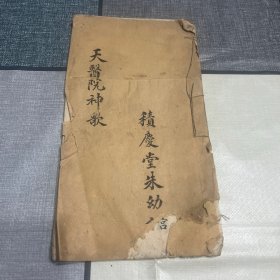 天醫院神歌
積慶堂朱幼